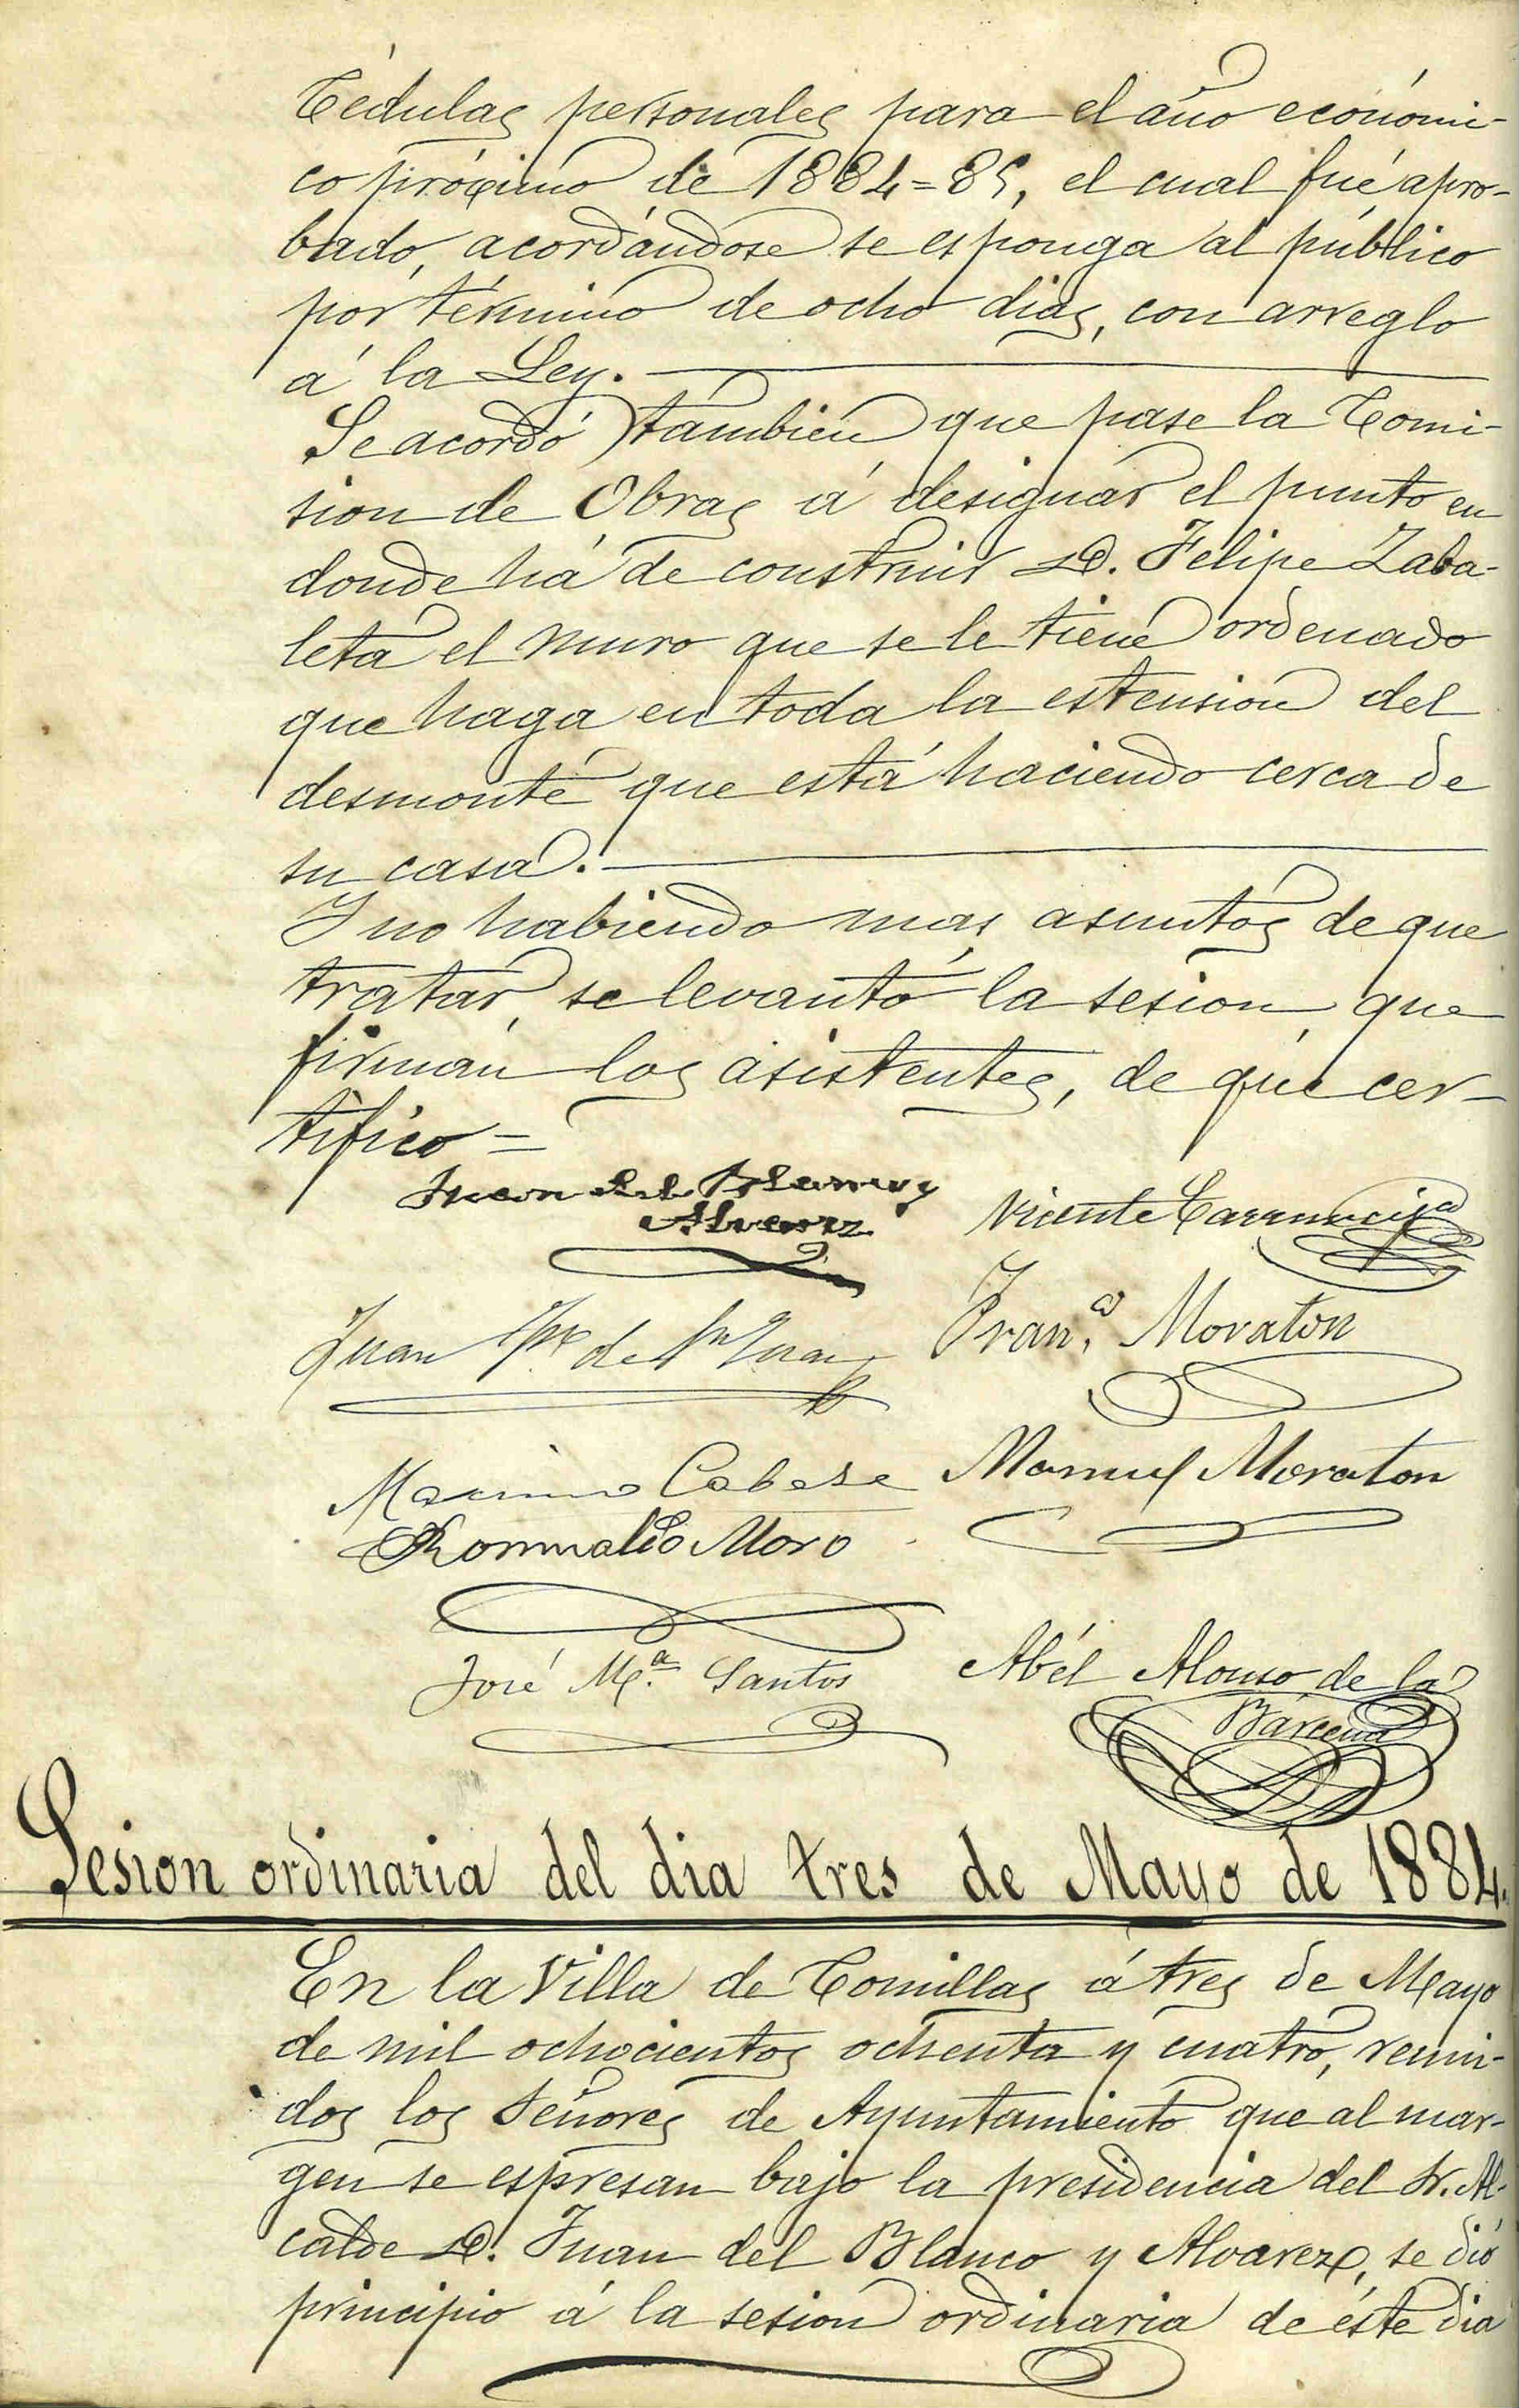 Cédulas personales para el año económi-
co próximo de 1884=85, el cual fué apro-
bado, acordándose se esponga al público
por término de ocho dias, con arreglo
á la Ley.
Se acordó tambien que pase la Comi-
sion de Obras á designar el punto en
donde há de construir D. Felipe Zaba-
leta el muro que se le tiene ordenado
que haga en toda la estension del
desmonte que está haciendo cerca de
su casa.
Y no habiendo mas asuntos de que
tratar, se levantó la sesion, que
firman los asistentes, de que cer-
tifico=
Juan del Blanco y
Alvarez
Vicente
Juan de Sn Juan
Fran.co Moraton
Maximino Cabeza
Manuel Moraton
Romualdo Moro
José M.a Santos
Abél Alonso de la
Bárcena
Sesion ordinaria del dia tres de Mayo de 1884.
En la Villa de Comillas á tres de Mayo
de mil ochocientos ochenta y cuatro, reuni-
dos los Señores de Ayuntamiento que al mar-
gen se espresan bajo la presidencia del Sr. Al-
calde D. Juan del Blanco y Alvarez, se dió
principio á la sesion ordinaria de éste dia